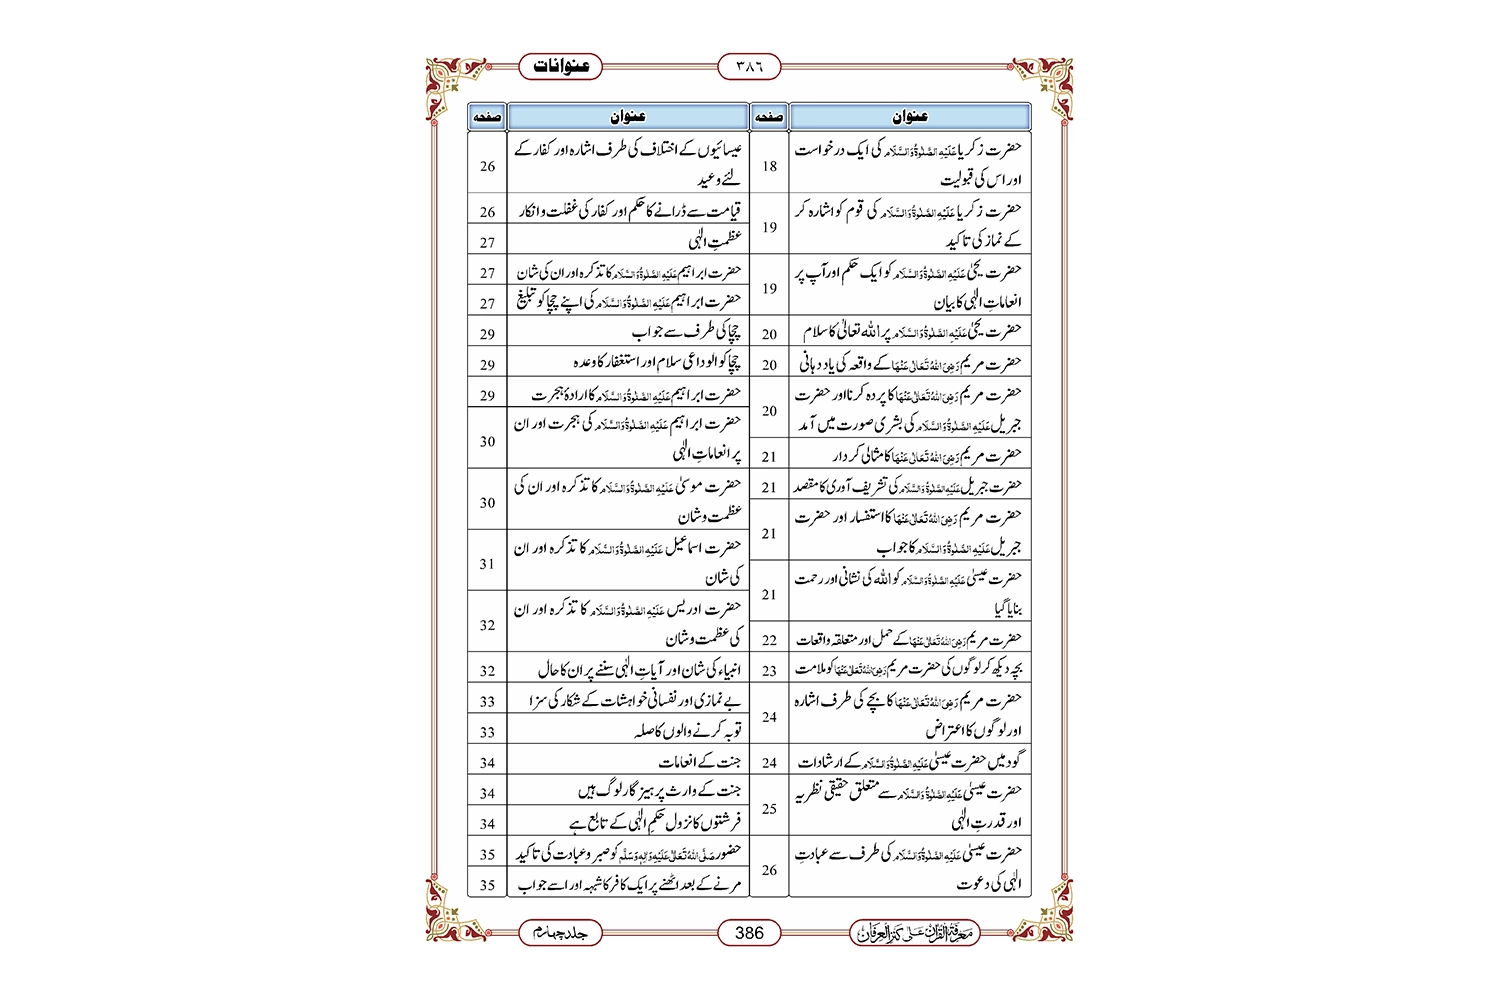 عنوانات
۳۸۶
عنوان
صفحہ
حضرت زکریا عَلَیْہِ الصَّلٰوۃُ وَالسَّلَام کی ایک درخواست
اور اس کی قبولیت
18
حضرت زکریا عَلَیْہِ الصَّلٰوۃُ وَالسَّلَام کی قوم کو اشارہ کر
کے نماز کی تاکید
19
حضرت یحییٰ عَلَیْہِ الصَّلٰوۃُ وَالسَّلَام کو ایک حکم اور آپ پر
انعاماتِ الٰہی کا بیان
19
حضرت یحییٰ عَلَیْہِ الصَّلٰوۃُ وَالسَّلَام پر اللّٰہ تعالیٰ کا سلام
20
حضرت مریم رَضِیَ اللہُ تَعَالٰی عَنْہَا کے واقعہ کی یاد دہانی
20
حضرت مریم رَضِیَ اللہُ تَعَالٰی عَنْہَا کا پردہ کرنا اور حضرت
جبریل عَلَیْہِ الصَّلٰوۃُ وَالسَّلَام کی بشری صورت میں آمد
20
حضرت مریم رَضِیَ اللہُ تَعَالٰی عَنْہَا کا مثالی کردار
21
حضرت جبریل عَلَیْہِ الصَّلٰوۃُ وَالسَّلَام کی تشریف آوری کا مقصد
21
حضرت مریم رَضِیَ اللہُ تَعَالٰی عَنْہَا کا استفسار اور حضرت
جبریل عَلَیْہِ الصَّلٰوۃُ وَالسَّلَام کا جواب
21
حضرت عیسیٰ عَلَیْہِ الصَّلٰوۃُ وَالسَّلَام کو اللّٰہ کی نشانی اور رحمت
بنایا گیا
21
حضرت مریم رَضِیَ اللہُ تَعَالٰی عَنْہَا کے حمل اور متعلقہ واقعات
22
بچہ دیکھ کر لوگوں کی حضرت مریم رَضِیَ اللہُ تَعَالٰی عَنْہَا کو ملامت
23
حضرت مریم رَضِیَ اللہُ تَعَالٰی عَنْہَا کا بچے کی طرف اشارہ
اور لوگوں کا اعتراض
24
گود میں حضرت عیسیٰ عَلَیْہِ الصَّلٰوۃُ وَالسَّلَام کے ارشادات
24
حضرت عیسیٰ عَلَیْہِ الصَّلٰوۃُ وَالسَّلَام سے متعلق حقیقی نظریہ
اور قدرتِ الٰہی
25
حضرت عیسیٰ عَلَیْہِ الصَّلٰوۃُ وَالسَّلَام کی طرف سے عبادتِ
الٰہی کی دعوت
26
عنوان
صفحہ
عیسائیوں کے اختلاف کی طرف اشارہ اور کفار کے
لئے وعید
26
قیامت سے ڈرانے کا حکم اور کفار کی غفلت و انکار
26
عظمتِ الٰہی
27
حضرت ابراہیم عَلَیْہِ الصَّلٰوۃُ وَالسَّلَام کا تذکرہ اور ان کی شان
27
حضرت ابراہیم عَلَیْہِ الصَّلٰوۃُ وَالسَّلَام کی اپنے چچا کو تبلیغ
27
چچا کی طرف سے جواب
29
چچا کو الوداعی سلام اور استغفار کا وعدہ
29
حضرت ابراہیم عَلَیْہِ الصَّلٰوۃُ وَالسَّلَام کا ارادۂ ہجرت
29
حضرت ابراہیم عَلَیْہِ الصَّلٰوۃُ وَالسَّلَام کی ہجرت اور ان
پر انعاماتِ الٰہی
30
حضرت موسیٰ عَلَیْہِ الصَّلٰوۃُ وَالسَّلَام کا تذکرہ اور ان کی
عظمت و شان
30
حضرت اسماعیل عَلَیْہِ الصَّلٰوۃُ وَالسَّلَام کا تذکرہ اور ان
کی شان
31
حضرت ادریس عَلَیْہِ الصَّلٰوۃُ وَالسَّلَام کا تذکرہ اور ان
کی عظمت و شان
32
انبیاء کی شان اور آیاتِ الٰہی سننے پر ان کا حال
32
بے نمازی اور نفسانی خواہشات کے شکار کی سزا
33
توبہ کرنے والوں کا صلہ
33
جنت کے انعامات
34
جنت کے وارث پرہیز گار لوگ ہیں
34
فرشتوں کا نزول حکمِ الٰہی کے تابع ہے
34
حضور صَلَّی اللہُ تَعَالٰی عَلَیْہِ وَاٰلِہٖ وَسَلَّم کو صبر و عبادت کی تاکید
35
مرنے کے بعد اٹھنے پر ایک کافر کا شبہ اور اسے جواب
35
معرفۃ القرآن علی کنز العرفان
386
جلد چہارم